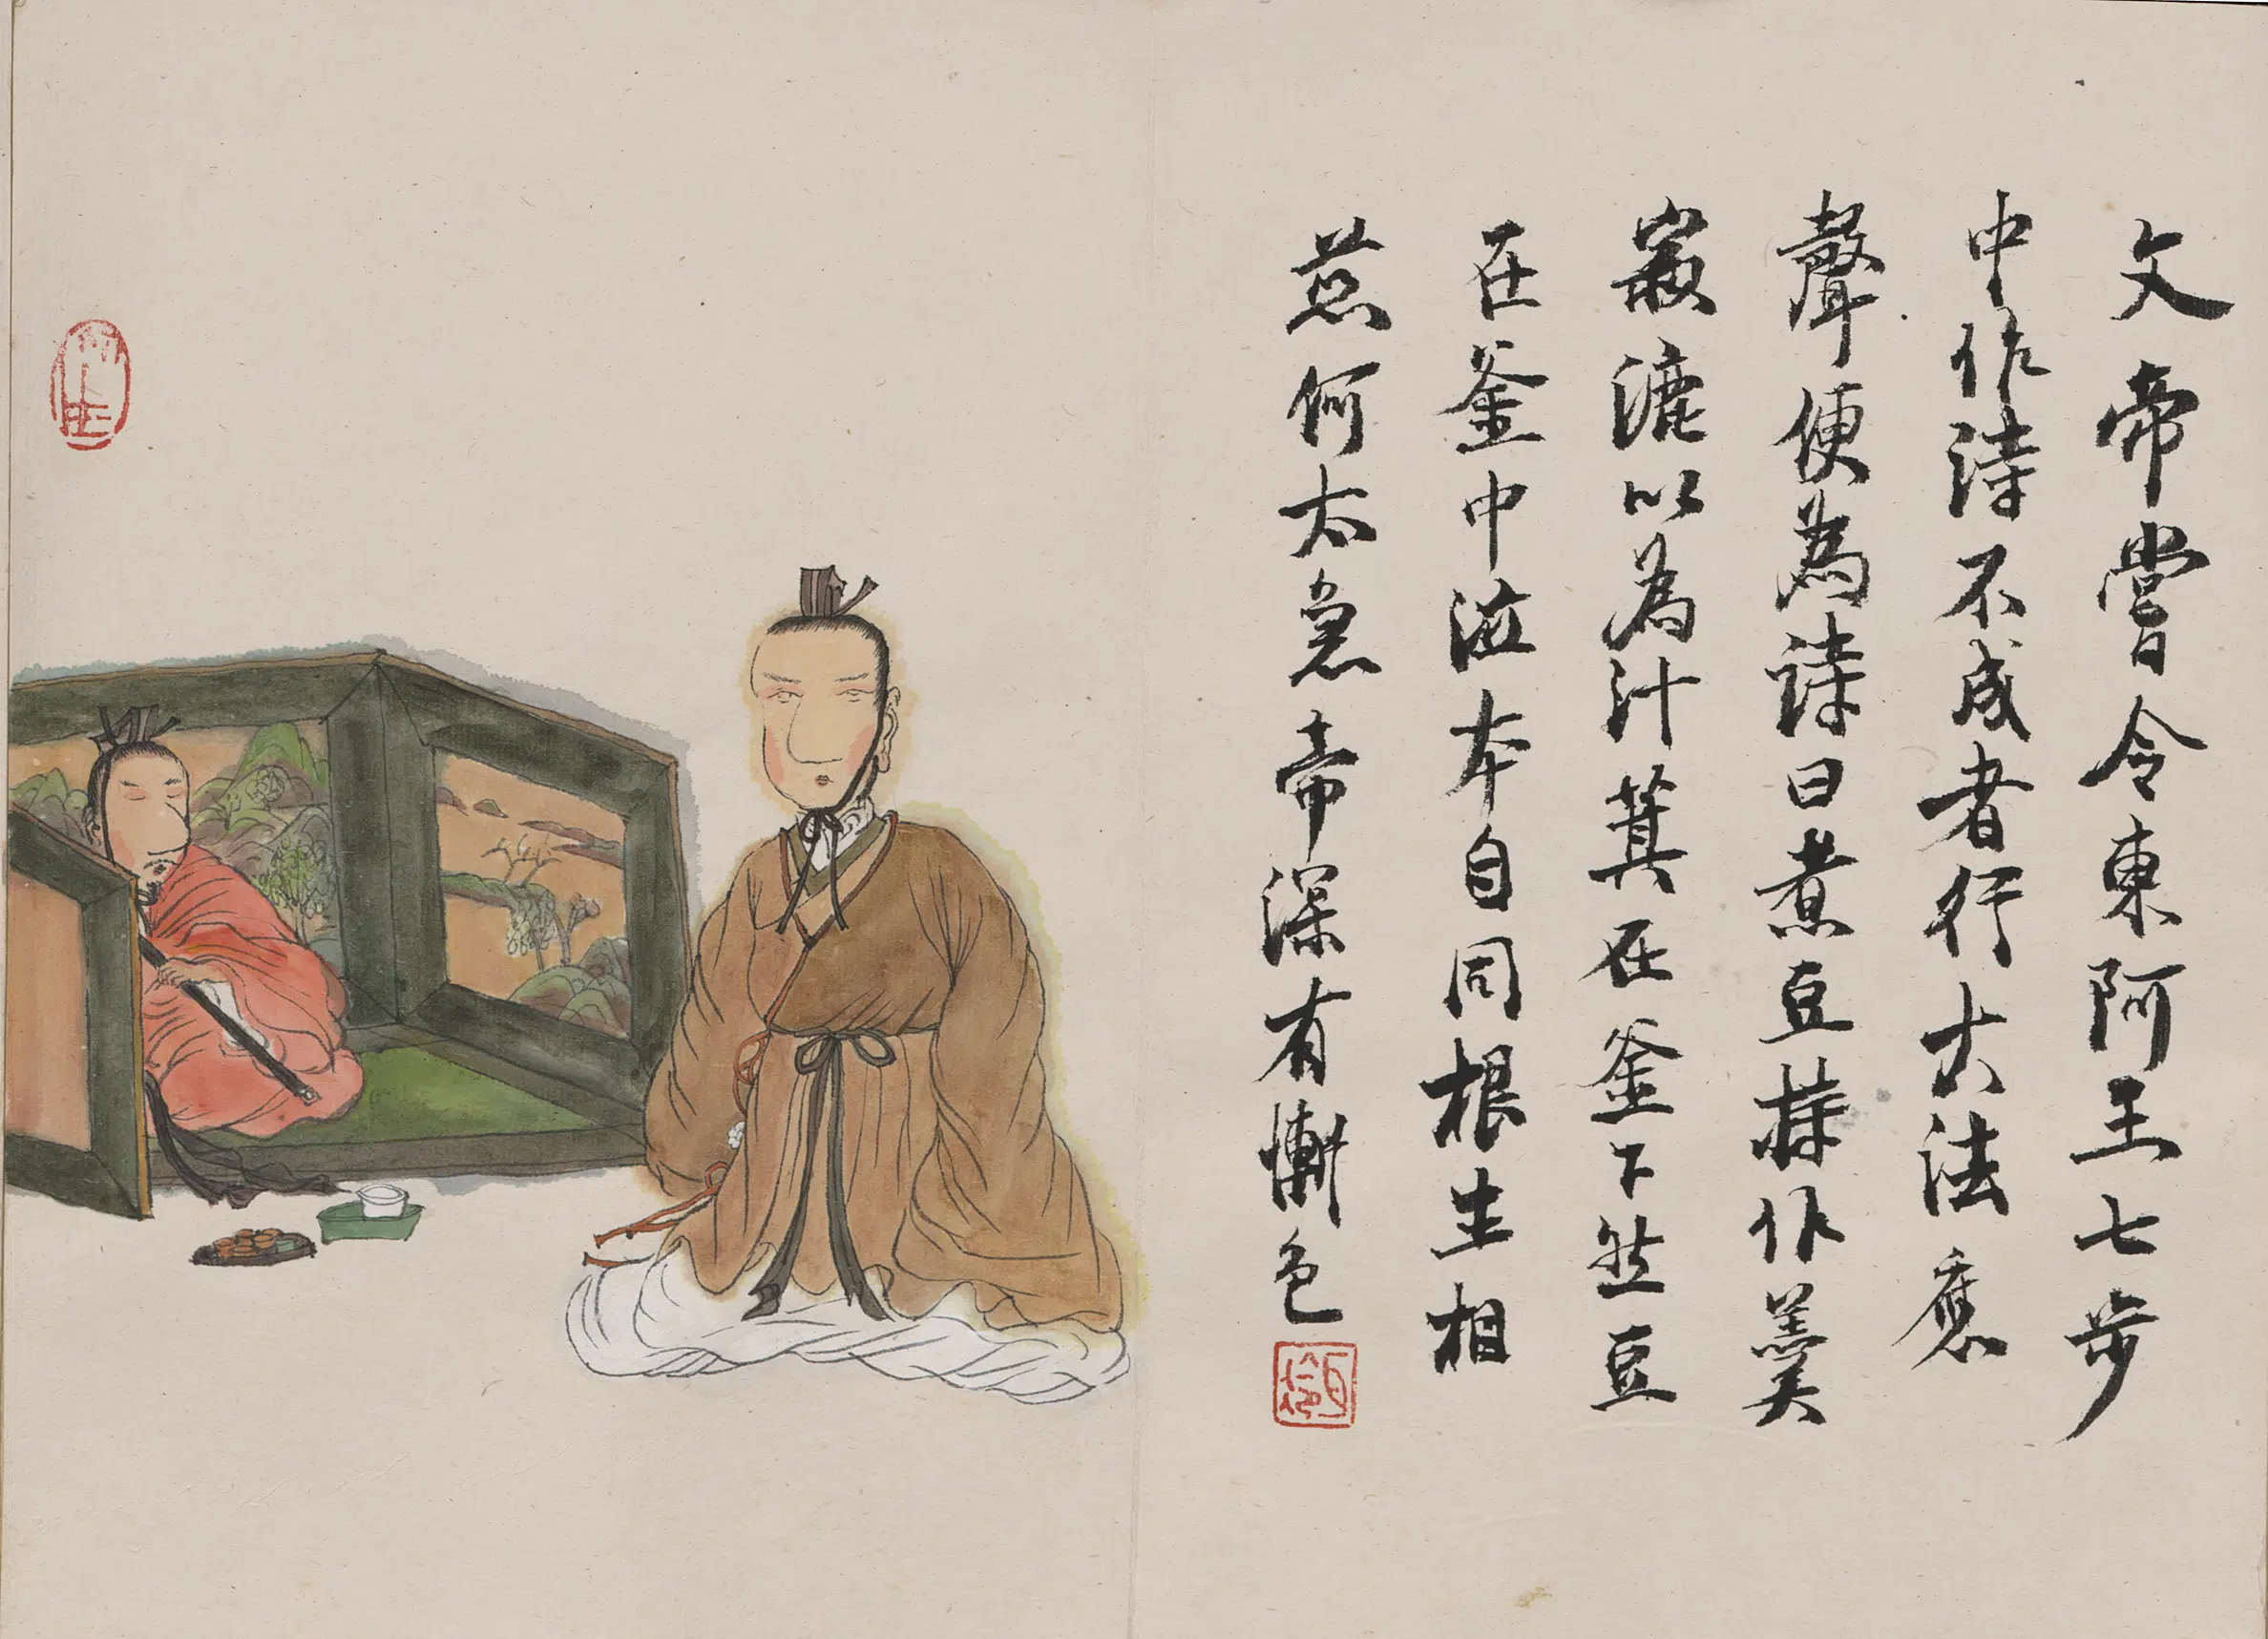 文帝嘗令東阿王七步
中作詩不成者行大法應
聲便為詩曰煮豆持作羹
菽漉以為汁萁在釜下然豆
在釜中泣本自同根生相
煎何太急帝深有慚色